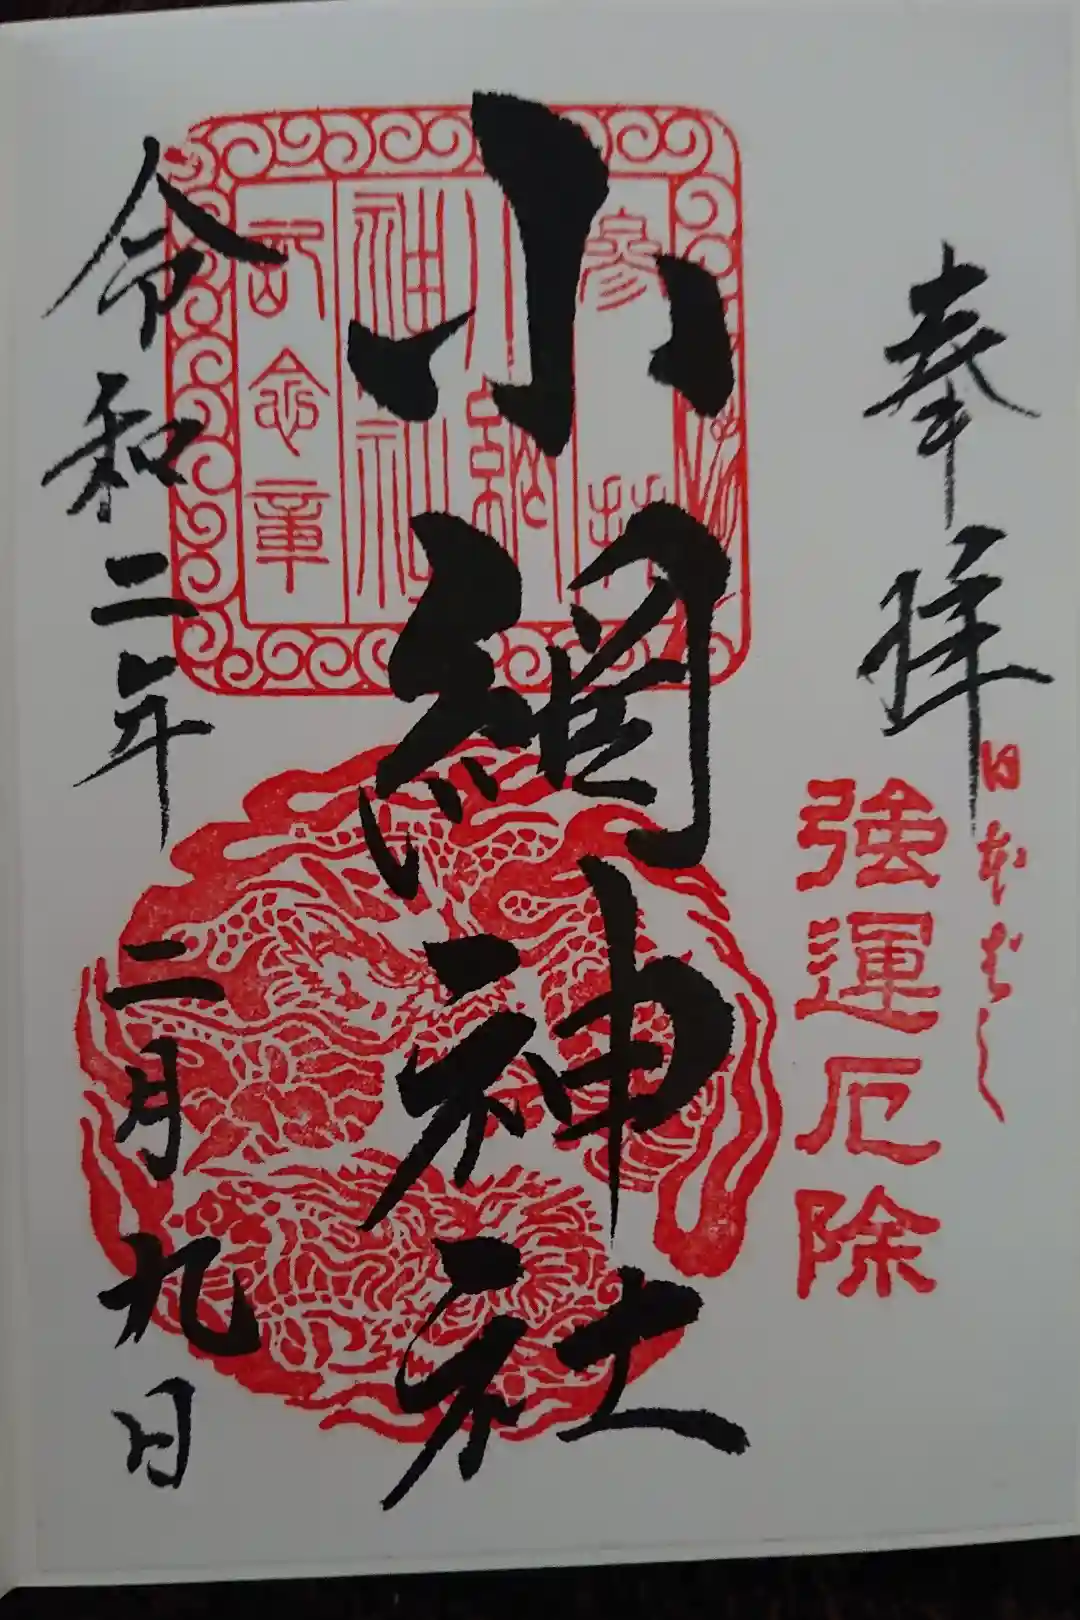 奉拝
日本ばし
強運厄除
小網神社
参拝
小網
神社
記念章
令和二年二月九日